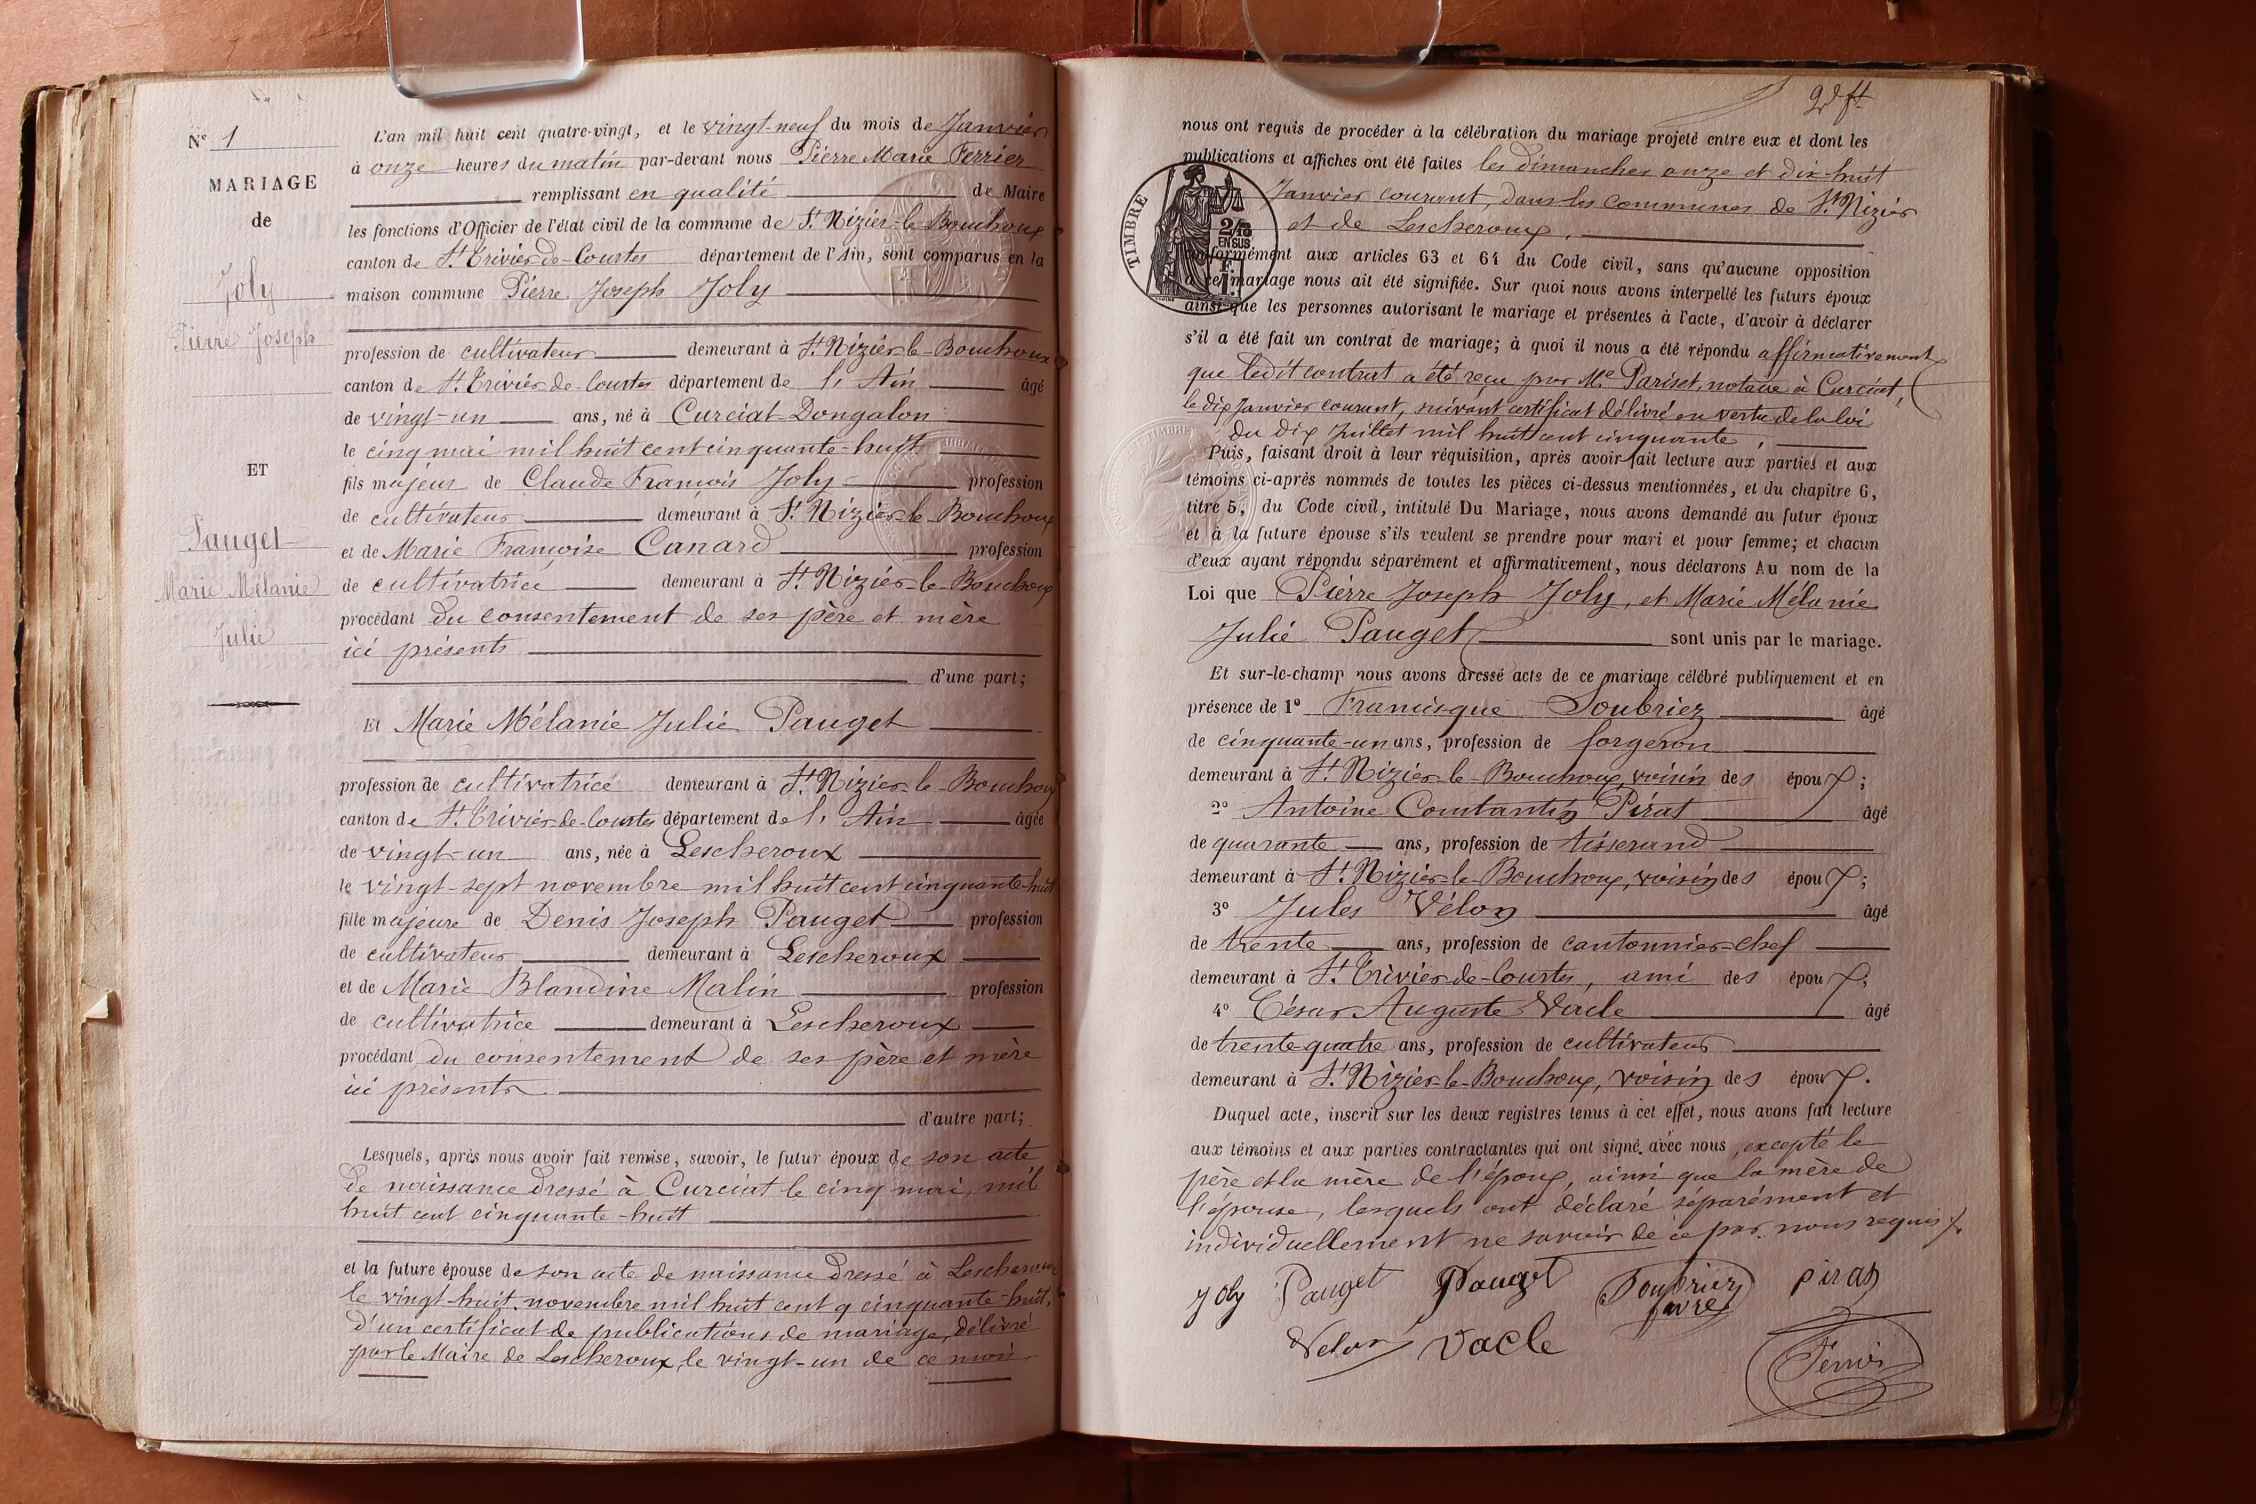 N° 1
MARIAGE
de
Joly
Pierre Joseph
ET
Pauget
Marie Mélanie
Julie
L'an mil huit cent quatre-vingt, et le vingt-neuf du mois de Janvier
à onze heures du matin par-devant nous Pierre Marie Ferrier
remplissant en qualité de Maire
les fonctions d'Officier de l'état civil de la commune de St Nizier-le-Bouchoux
canton de St Trivier-de-Courtes département de l'Ain, sont comparus en la
maison commune Pierre Joseph Joly
profession de cultivateur demeurant à St Nizier-le-Bouchoux
canton de St Trivier-de-Courtes département de l'Ain âgé
de vingt-un ans, né à Curciat-Dongalon
le cinq mai mil huit cent cinquante-huit
fils majeur de Claude François Joly profession
de cultivateur demeurant à St Nizier-le-Bouchoux
et de Marie Françoise Canard profession
de cultivatrice demeurant à St Nizier-le-Bouchoux
procédant du consentement de ses père et mère
ici présents
d'une part;
Et Marie Mélanie Julie Pauget
profession de cultivatrice demeurant à St Nizier-le-Bouchoux
canton de St Trivier-de-Courtes département de l'Ain âgée
de vingt-un ans, née à Lescheroux
le vingt-sept novembre mil huit cent cinquante-huit
fille majeure de Denis Joseph Pauget profession
de cultivateur demeurant à Lescheroux
et de Marie Blandine Malin profession
de cultivatrice demeurant à Lescheroux
procédant du consentement de ses père et mère
ici présents
d'autre part;
Lesquels, après nous avoir fait remise, savoir, le futur époux de son acte
de naissance dressé à Curciat le cinq mai mil
huit cent cinquante-huit
et la future épouse de son acte de naissance dressé à Lescheroux
le vingt-huit novembre mil huit cent q cinquante-huit,
d'un certificat de publications de mariage, délivré
par le Maire de Lescheroux, le vingt-un de ce mois
nous ont requis de procéder à la célébration du mariage projeté entre eux et dont les
publications et affiches ont été faites les dimanches onze et dix-huit
Janvier courant, dans les communes de St Nizier
et de Lescheroux,
conformément aux articles 63 et 64 du Code civil, sans qu'aucune opposition
à ce mariage nous ait été signifiée. Sur quoi nous avons interpellé les futurs époux
ainsi que les personnes autorisant le mariage et présentes à l'acte, d'avoir à déclarer
s'il a été fait un contrat de mariage; à quoi il nous a été répondu affirmativement
que ledit contrat a été reçu par Me Pariset, notaire à Curciat,
le dix Janvier courant, suivant certificat délivré en vertu de la loi
du dix Juillet mil huit cent cinquante,
Puis, faisant droit à leur réquisition, après avoir fait lecture aux parties et aux
témoins ci-après nommés de toutes les pièces ci-dessus mentionnées, et du chapitre 6,
titre 5, du Code civil, intitulé Du Mariage, nous avons demandé au futur époux
et à la future épouse s'ils veulent se prendre pour mari et pour femme; et chacun
d'eux ayant répondu séparément et affirmativement, nous déclarons Au nom de la
Loi que Pierre Joseph Joly, et Marie Mélanie
Julie Pauget sont unis par le mariage.
Et sur-le-champ nous avons dressé acte de ce mariage célébré publiquement et en
présence de 1° Francisque Soubriez âgé
de cinquante-un ans, profession de forgeron
demeurant à St Nizier-le-Bouchoux, voisin des époux;
2° Antoine Constantin Pirat âgé
de quarante ans, profession de tisserand
demeurant à St Nizier-le-Bouchoux, voisin des époux;
3° Jules Vélon âgé
de trente ans, profession de cantonnier-chef
demeurant à St Trivier-de-Courtes, ami des époux;
4° César Auguste Vacle âgé
de trente-quatre ans, profession de cultivateur
demeurant à St Nizier-le-Bouchoux, voisin des époux.
Duquel acte, inscrit sur les deux registres tenus à cet effet, nous avons fait lecture
aux témoins et aux parties contractantes qui ont signé avec nous, excepté le
père et la mère de l'époux, ainsi que la mère de
l'épouse, lesquels ont déclaré séparément et
individuellement ne savoir de ce par nous requis
Joly Pauget Pauget Soubriez pirat
Velon Vacle
TIMBRE
2/10
EN SUS